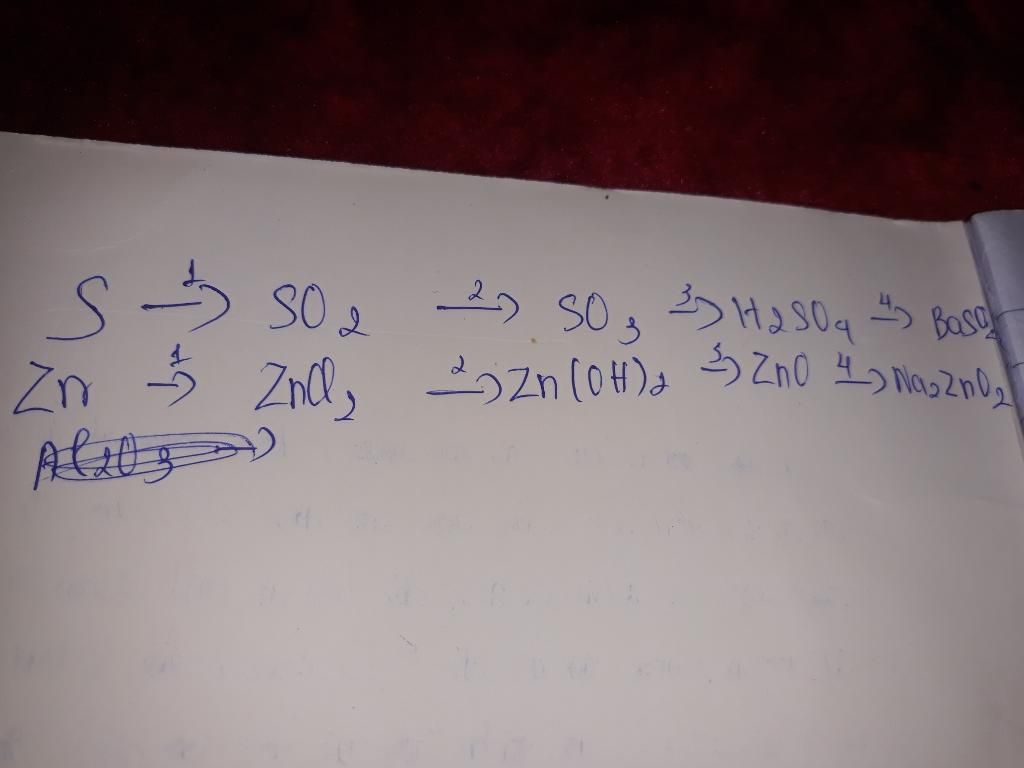 S →1 SO2 →2 SO3 →3 H2SO4 →4 BaSO4
Zn →1 ZnCl2 →2 Zn(OH)2 →3 ZnO →4 Na2ZnO2
Al2O3